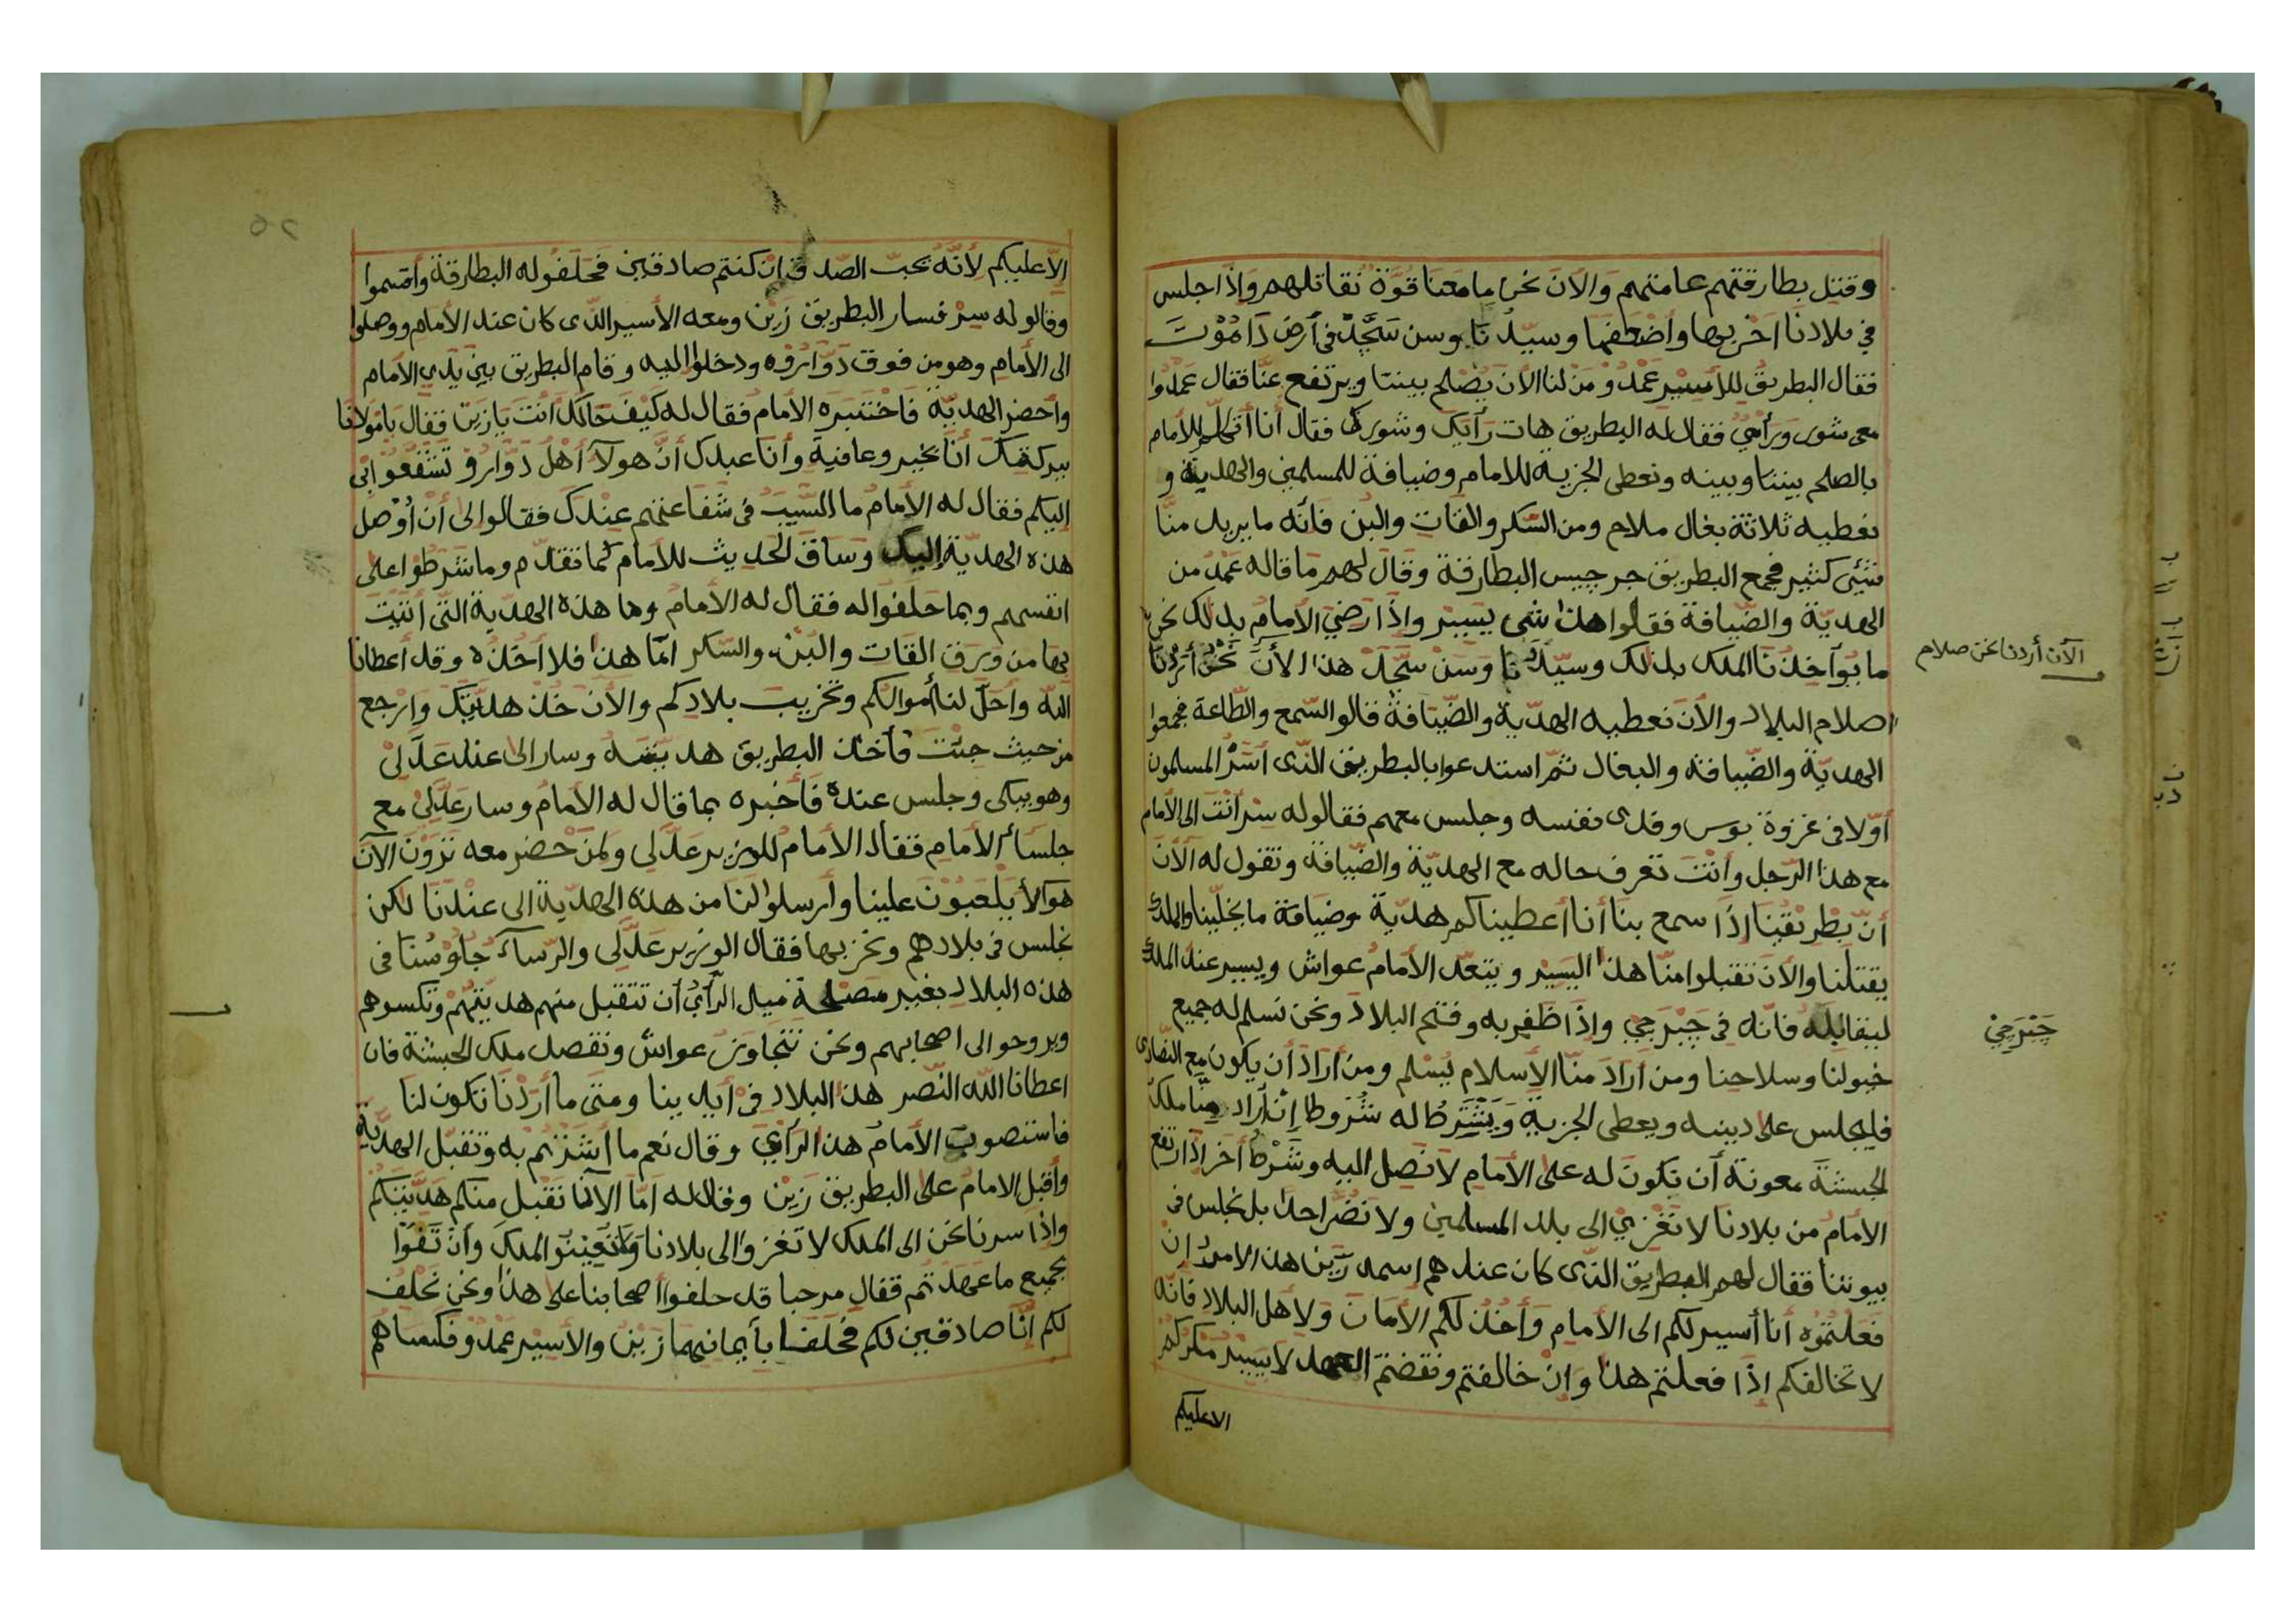 وقتل بطارقتهم عامتهم والآن نحن ما معنا قوة نقاتلهم وإذا جلس
في بلادنا اخربها واضعفها وسيدنا وسن سجد في أرض داموت
فقال البطريق للأسير عمدو من لنا الآن يصلح بيننا ويرتفع عنا فقال عمدوا
معى شور ورأي فقال له البطريق هات رأيك وشورك فقال أنا أتكلم للأمام
بالصلح بيننا وبينه ونعطى الجزية للامام وضيافة للمسلمين والهدية و
نعطيه ثلاثة بغال ملاح ومن السكر والقات والبن فانه ما يريد منا
شئى كثير فجمع البطريق جرجيس البطارقة وقال لهم ما قاله عمد من
الهدية والضيافة فقالوا هذا شى يسير وإذا رضي الأمام بذلك نحن
ما يوآخذنا الملك بذلك وسيدنا وسن سجد هذا الأن نحن أردنا
اصلاح البلاد والآن نعطيه الهدية والضيافة قالوا السمع والطاعة فجمعوا
الهدية والضيافة والبغال ثم استدعوا بالبطريق الذى أسر المسلمون
أولا في غزوة بوس وفدى نفسه وجلس معهم فقالوا له سر أنت الى الأمام
مع هذا الرجل وأنت تعرف حاله مع الهدية والضيافة وتقول له الآن
أن بطريقنا إذا سمع بنا أنا أعطيناكم هدية وضيافة ما يخلينا والملك
يقتلنا والآن تقبلوا منا هذا اليسير ويتعد الأمام عواش ويسير عند الملك
ليقابله فانه في جبرجي وإذا ظفر به وفتح البلاد ونحن نسلم له جميع
خيولنا وسلاحنا ومن أراد منا الأسلام يسلم ومن أراد أن يكون مع النصارى
فليجلس على دينه ويعطى الجزية ويشترط له شروطا إن أراد منا ملك
الحبشة معونة أن تكون له على الأمام لا نصل اليه وشرط أخر إذا ارتفع
الأمام من بلادنا لا نغزي الى بلد المسلمين ولا نضر احدا بل نجلس في
بيوتنا فقال لهم البطريق الذى كان عندهم اسمه زين هذا الامر إن
فعلتموه أنا أسير لكم الى الأمام وأخذ لكم الأمان ولاهل البلاد فانه
لا تخالفكم إذا فعلتم هذا وإن خالفتم ونقضتم العهد لا يسير مكركم
الاعليكم
الآن أردنا نحن صلاح
جبرجي
الا عليكم لأنه يحب الصدق ان كنتم صادقين فحلفوا له البطارقة وأقسموا
وقالو له سر فسار البطريق زين ومعه الأسير الذى كان عند الأمام ووصلوا
الى الأمام وهو من فوق دواروه ودخلوا اليه وقام البطريق بين يدي الأمام
وأحضر الهدية فاختبره الامام فقال له كيف حالك أنت يا زين فقال يا مولانا
ببركتك أنا بخير وعافية وأنا عبدك أن هولا أهل دوارو تشفعوا بى
إليكم فقال له الأمام ما السبب فى شفاعتهم عندك فقالوا لى أن أوصل
هذه الهدية إليك وساق الحديث للأمام كما تقدم وما شرطوا على
انفسهم وبما حلفوا له فقال له الأمام وما هذه الهدية التى أتيت
بها من ورق القات والبن والسكر امّا هذا فلا أخذه وقد أعطانا
الله وأحل لنا أموالكم وتخريب بلادكم والآن خذ هديتك وارجع
من حيث جئت فأخذ البطريق هديته وسار الى عند عدلى
وهو يبكى وجلس عنده فأخبره بما قال له الأمام وسار عدلى مع
جلساء الأمام فقال الأمام للوزير عدلى ولمن حضر معه ترون الآن
هوالأ يلعبون علينا وأرسلوا لنا من هذه الهدية الى عندنا لكن
نجلس فى بلادهم ونخربها فقال الوزير عدلى والرساء جلوسنا فى
هذه البلاد بغير مصلحة ميل الرأي أن تتقبل منهم هديتهم وتكسوهم
ويروحو الى اصحابهم ونحن نتجاوز عواش ونقصد ملك الحبشة فان
اعطانا الله النصر هذا البلاد في أيدينا ومتى ما أردنا تكون لنا
فاستصوب الأمام هذا الرأي وقال نعم ما أشرتم به وتقبل الهدية
وأقبل الامام على البطريق زين وقال له أما الآنا نقبل منكم هديتكم
وإذا سرنا نحن الى الملك لا تغزوا الى بلادنا ولا تعينو الملك وأن تفوا
بجميع ما عهدتم فقال مرحبا قد حلفوا اصحابنا على هذا ونحن نحلف
لكم إنا صادقين لكم فحلفا بأيمانهما زين والأسير عمدو فكساهم